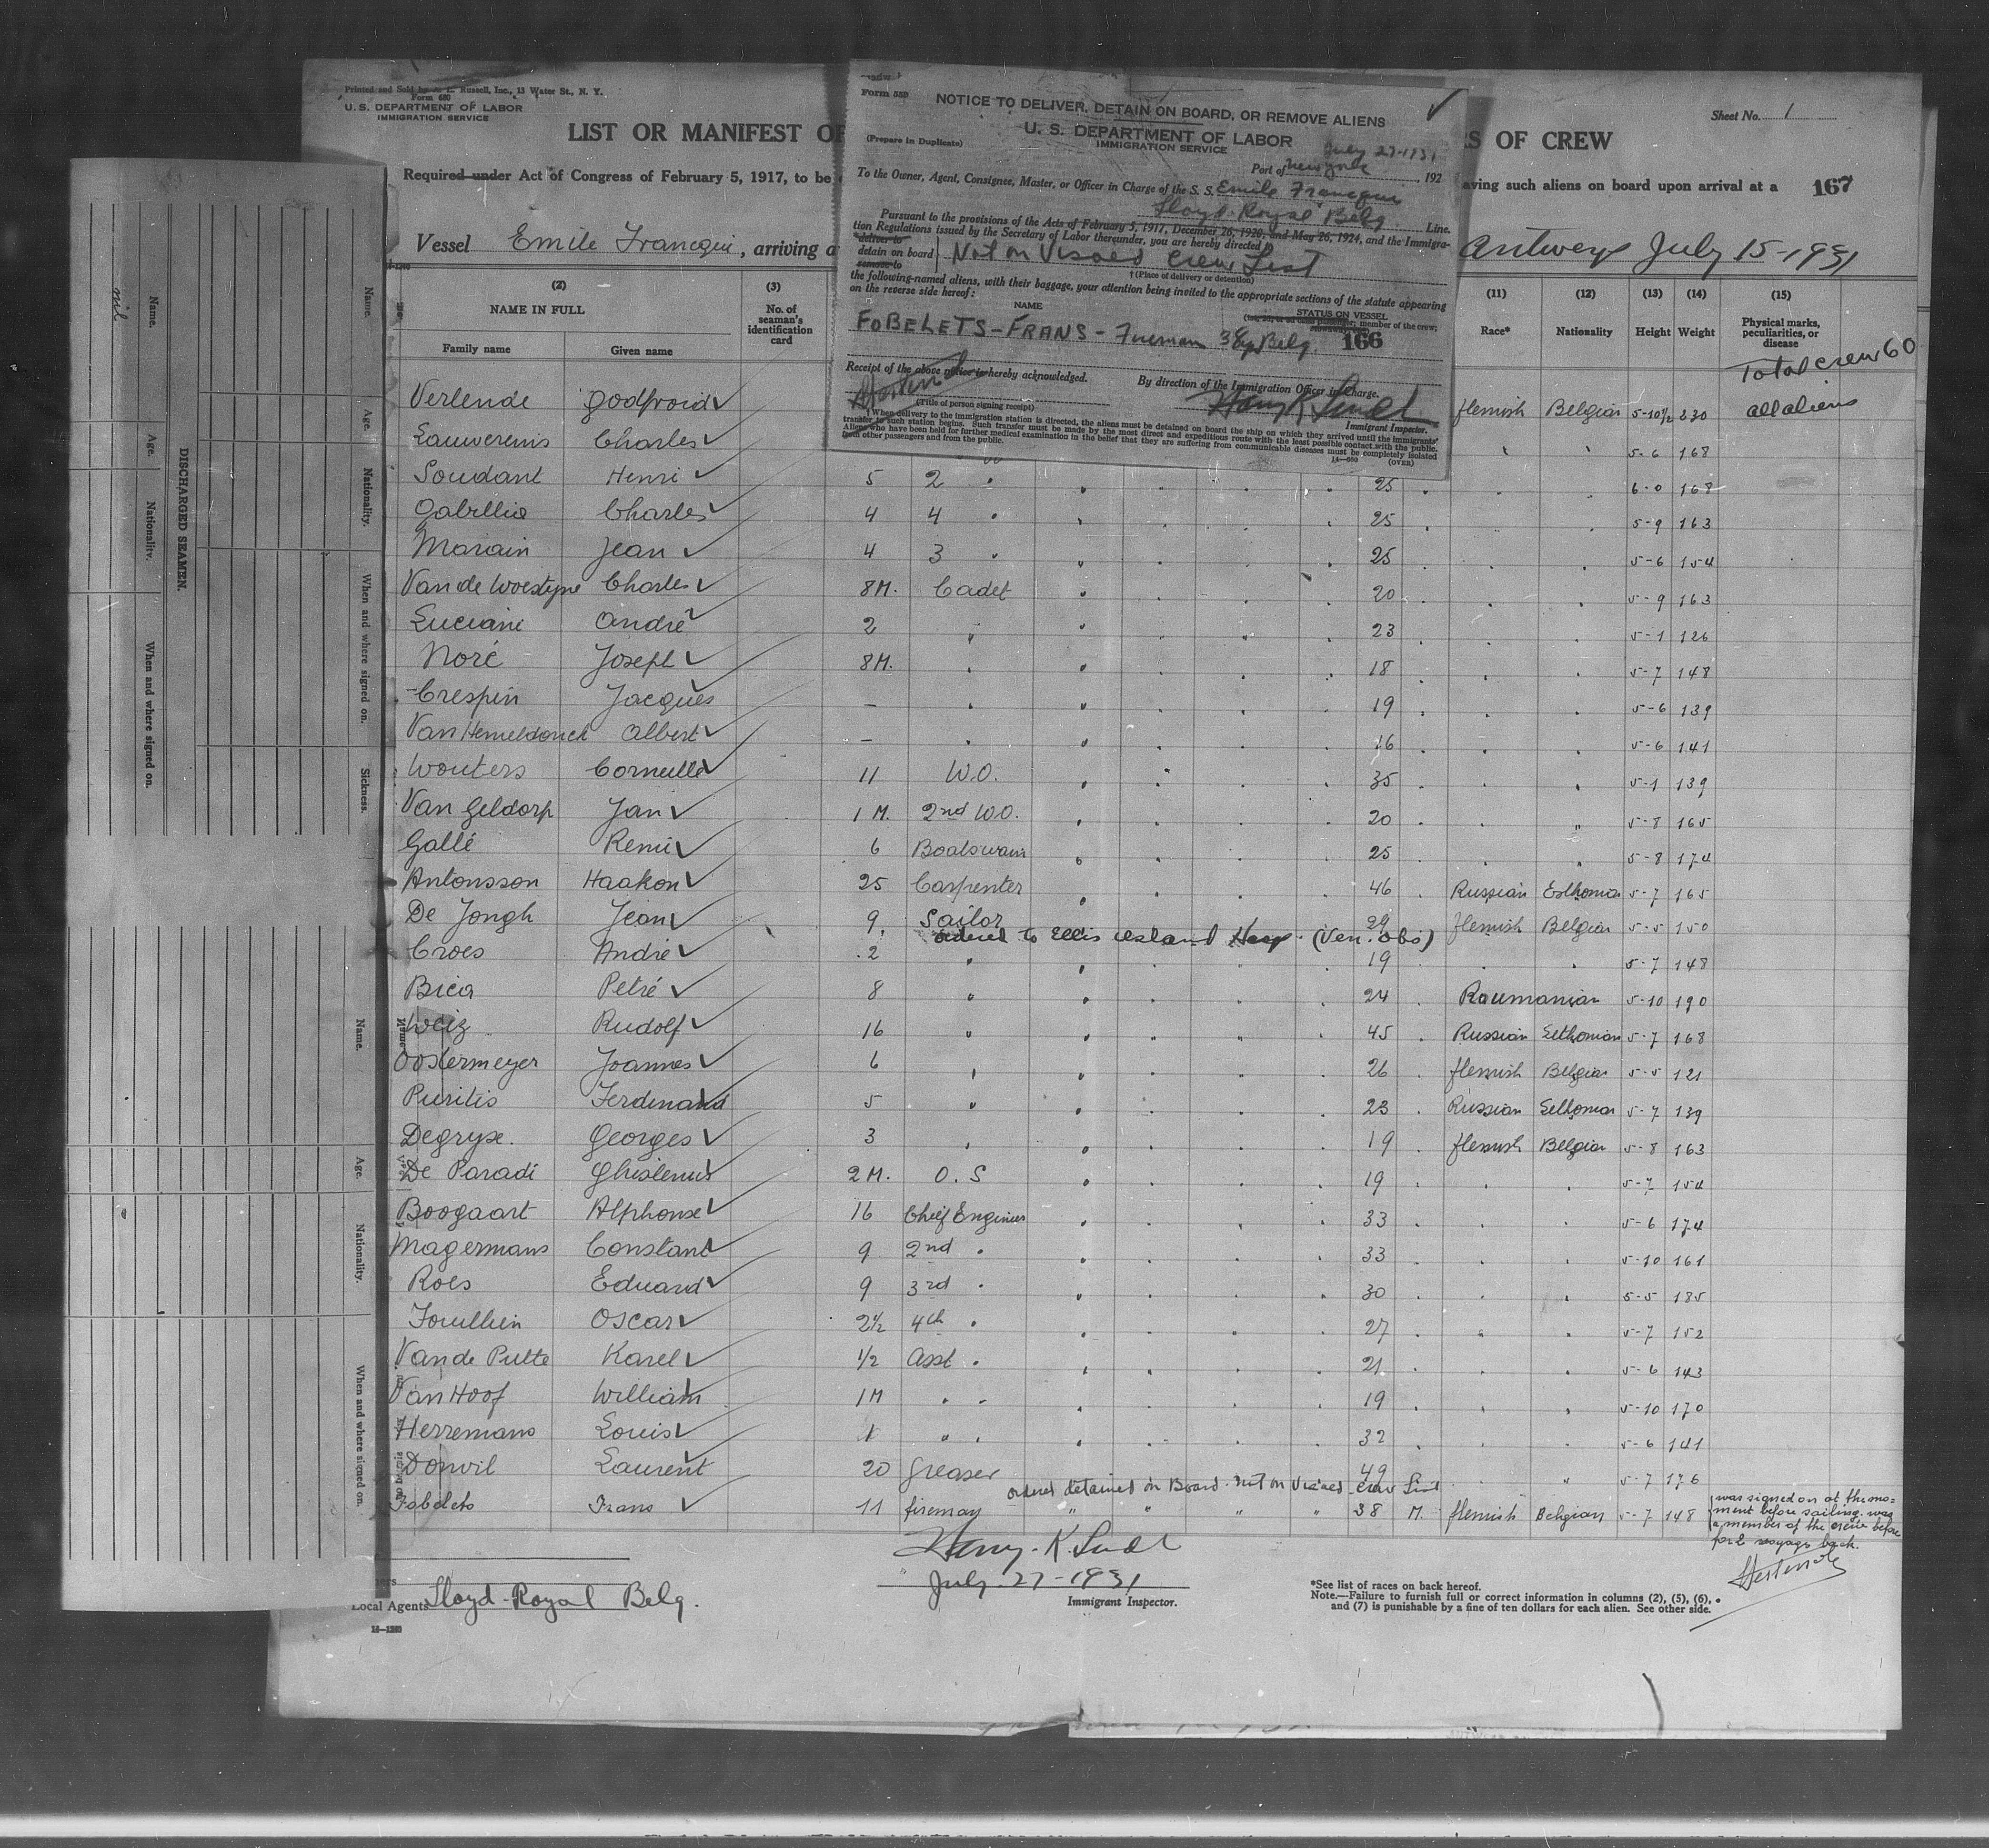 Printed and Sold by A. L. Russell, Inc., 13 Water St., N. Y.
Form 680
U. S. DEPARTMENT OF LABOR
IMMIGRATION SERVICE
LIST OR MANIFEST OF
RS OF CREW
Sheet No. 1
Required under Act of Congress of February 5, 1917, to be
aving such aliens on board upon arrival at a
167
Vessel Emile Francqui, arriving a
Antwerp July 15-1931
Form 559
NOTICE TO DELIVER, DETAIN ON BOARD, OR REMOVE ALIENS
U. S. DEPARTMENT OF LABOR
IMMIGRATION SERVICE
(Prepare in Duplicate)
July 27-1931
Port of New York, 192
To the Owner, Agent, Consignee, Master, or Officer in Charge of the S. S. Emile Francqui
Lloyd Royal Belg. Line.
Pursuant to the provisions of the Acts of February 5, 1917, December 26, 1920, and May 26, 1924, and the Immigra-
tion Regulations issued by the Secretary of Labor thereunder, you are hereby directed to
deliver to
detain on board
remove to
Not on Visaed Crew List
† (Place of delivery or detention)
the following-named aliens, with their baggage, your attention being invited to the appropriate sections of the statute appearing
on the reverse side hereof:
NAME
STATUS ON VESSEL
member of the crew;
FOBELETS-FRANS - Fireman 38y Belg. 166
Receipt of the above notice is hereby acknowledged.
By direction of the Immigration Officer in Charge.
Harry K. Lindl
(Title of person signing receipt)
Immigrant Inspector.
† When delivery to the immigration station is directed, the aliens must be detained on board the ship on which they arrived until the immigrants'
transfer to such station begins. Such transfer must be made by the most direct and expeditious route with the least possible contact with the public.
Aliens who have been held for further medical examination in the belief that they are suffering from communicable diseases must be completely isolated
from other passengers and from the public.
14—560 (OVER)
(2) (3) (11) (12) (13) (14) (15)
NAME IN FULL
Family name Given name
No. of seaman's identification card
Race* Nationality Height Weight
Physical marks, peculiarities, or disease
Total crew 60
all aliens
Verlende Godfroid flemish Belgian 5-10½ 230
Lauwereins Charles 5-6 168
Soudant Henri 5 2 " 25 6-0 168
Gabillia Charles 4 4 " 25 5-9 163
Marain Jean 4 3 " 25 5-6 154
Van de Woestyne Charles 8M. Cadet 20 5-9 163
Luciani André 2 " 23 5-1 126
Noré Joseph 8M. " 18 5-7 148
Crespin Jacques — " 19 5-6 139
Van Hemeldonck Albert — " 16 5-6 141
Wouters Corneille 11 W.O. 35 5-1 139
Van Geldorp Jan 1M. 2nd W.O. 20 5-8 165
Gallé Remi 6 Boatswain 25 5-8 174
Antonsson Haakon 25 Carpenter 46 Russian Esthonia 5-7 165
De Jongh Jean 9 Sailor 29 flemish Belgian 5-5 150
ordered to Ellis Island Hosp. (Ven. obs)
Croes André 2 " 19 5-7 148
Bica Petré 8 " 24 Roumanian 5-10 190
Weiz Rudolf 16 " 45 Russian Esthonian 5-7 168
Oostermeyer Joannes 6 " 26 flemish Belgian 5-5 121
Puritis Ferdinand 5 " 23 Russian Esthonian 5-7 139
Degryse. Georges 3 " 19 flemish Belgian 5-8 163
De Paradi Ghislenus 2M. O.S 19 5-7 154
Boogaart Alphonse 16 Chief Engineer 33 5-6 174
Magermans Constant 9 2nd " 33 5-10 161
Roes Eduard 9 3rd " 30 5-5 185
Foullien Oscar 2½ 4th " 27 5-7 152
Van de Putte Karel 1/2 Asst " 21 5-6 143
Van Hoof William 1M " " 19 5-10 170
Herremans Louis 1 " " 32 5-6 141
Donvil Laurent 20 Greaser 49 5-7 176
ordered detained on Board. Not on Visaed Crew List
Fobelets Frans 11 fireman " " " " 38 M. flemish Belgian 5-7 148
was signed on at the mo-
ment before sailing. was
a member of the crew before
for 2 voyages back.
Harry. K. Lindl
July. 27-1931
Immigrant Inspector.
Local Agents Lloyd-Royal Belg.
14—1240
*See list of races on back hereof.
Note.—Failure to furnish full or correct information in columns (2), (5), (6),
and (7) is punishable by a fine of ten dollars for each alien. See other side.
DISCHARGED SEAMEN.
Name. Age. Nationality. When and where signed on.
nil
Name. Age. Nationality. When and where signed on. Sickness.
Name. Age. Nationality. When and where signed on.